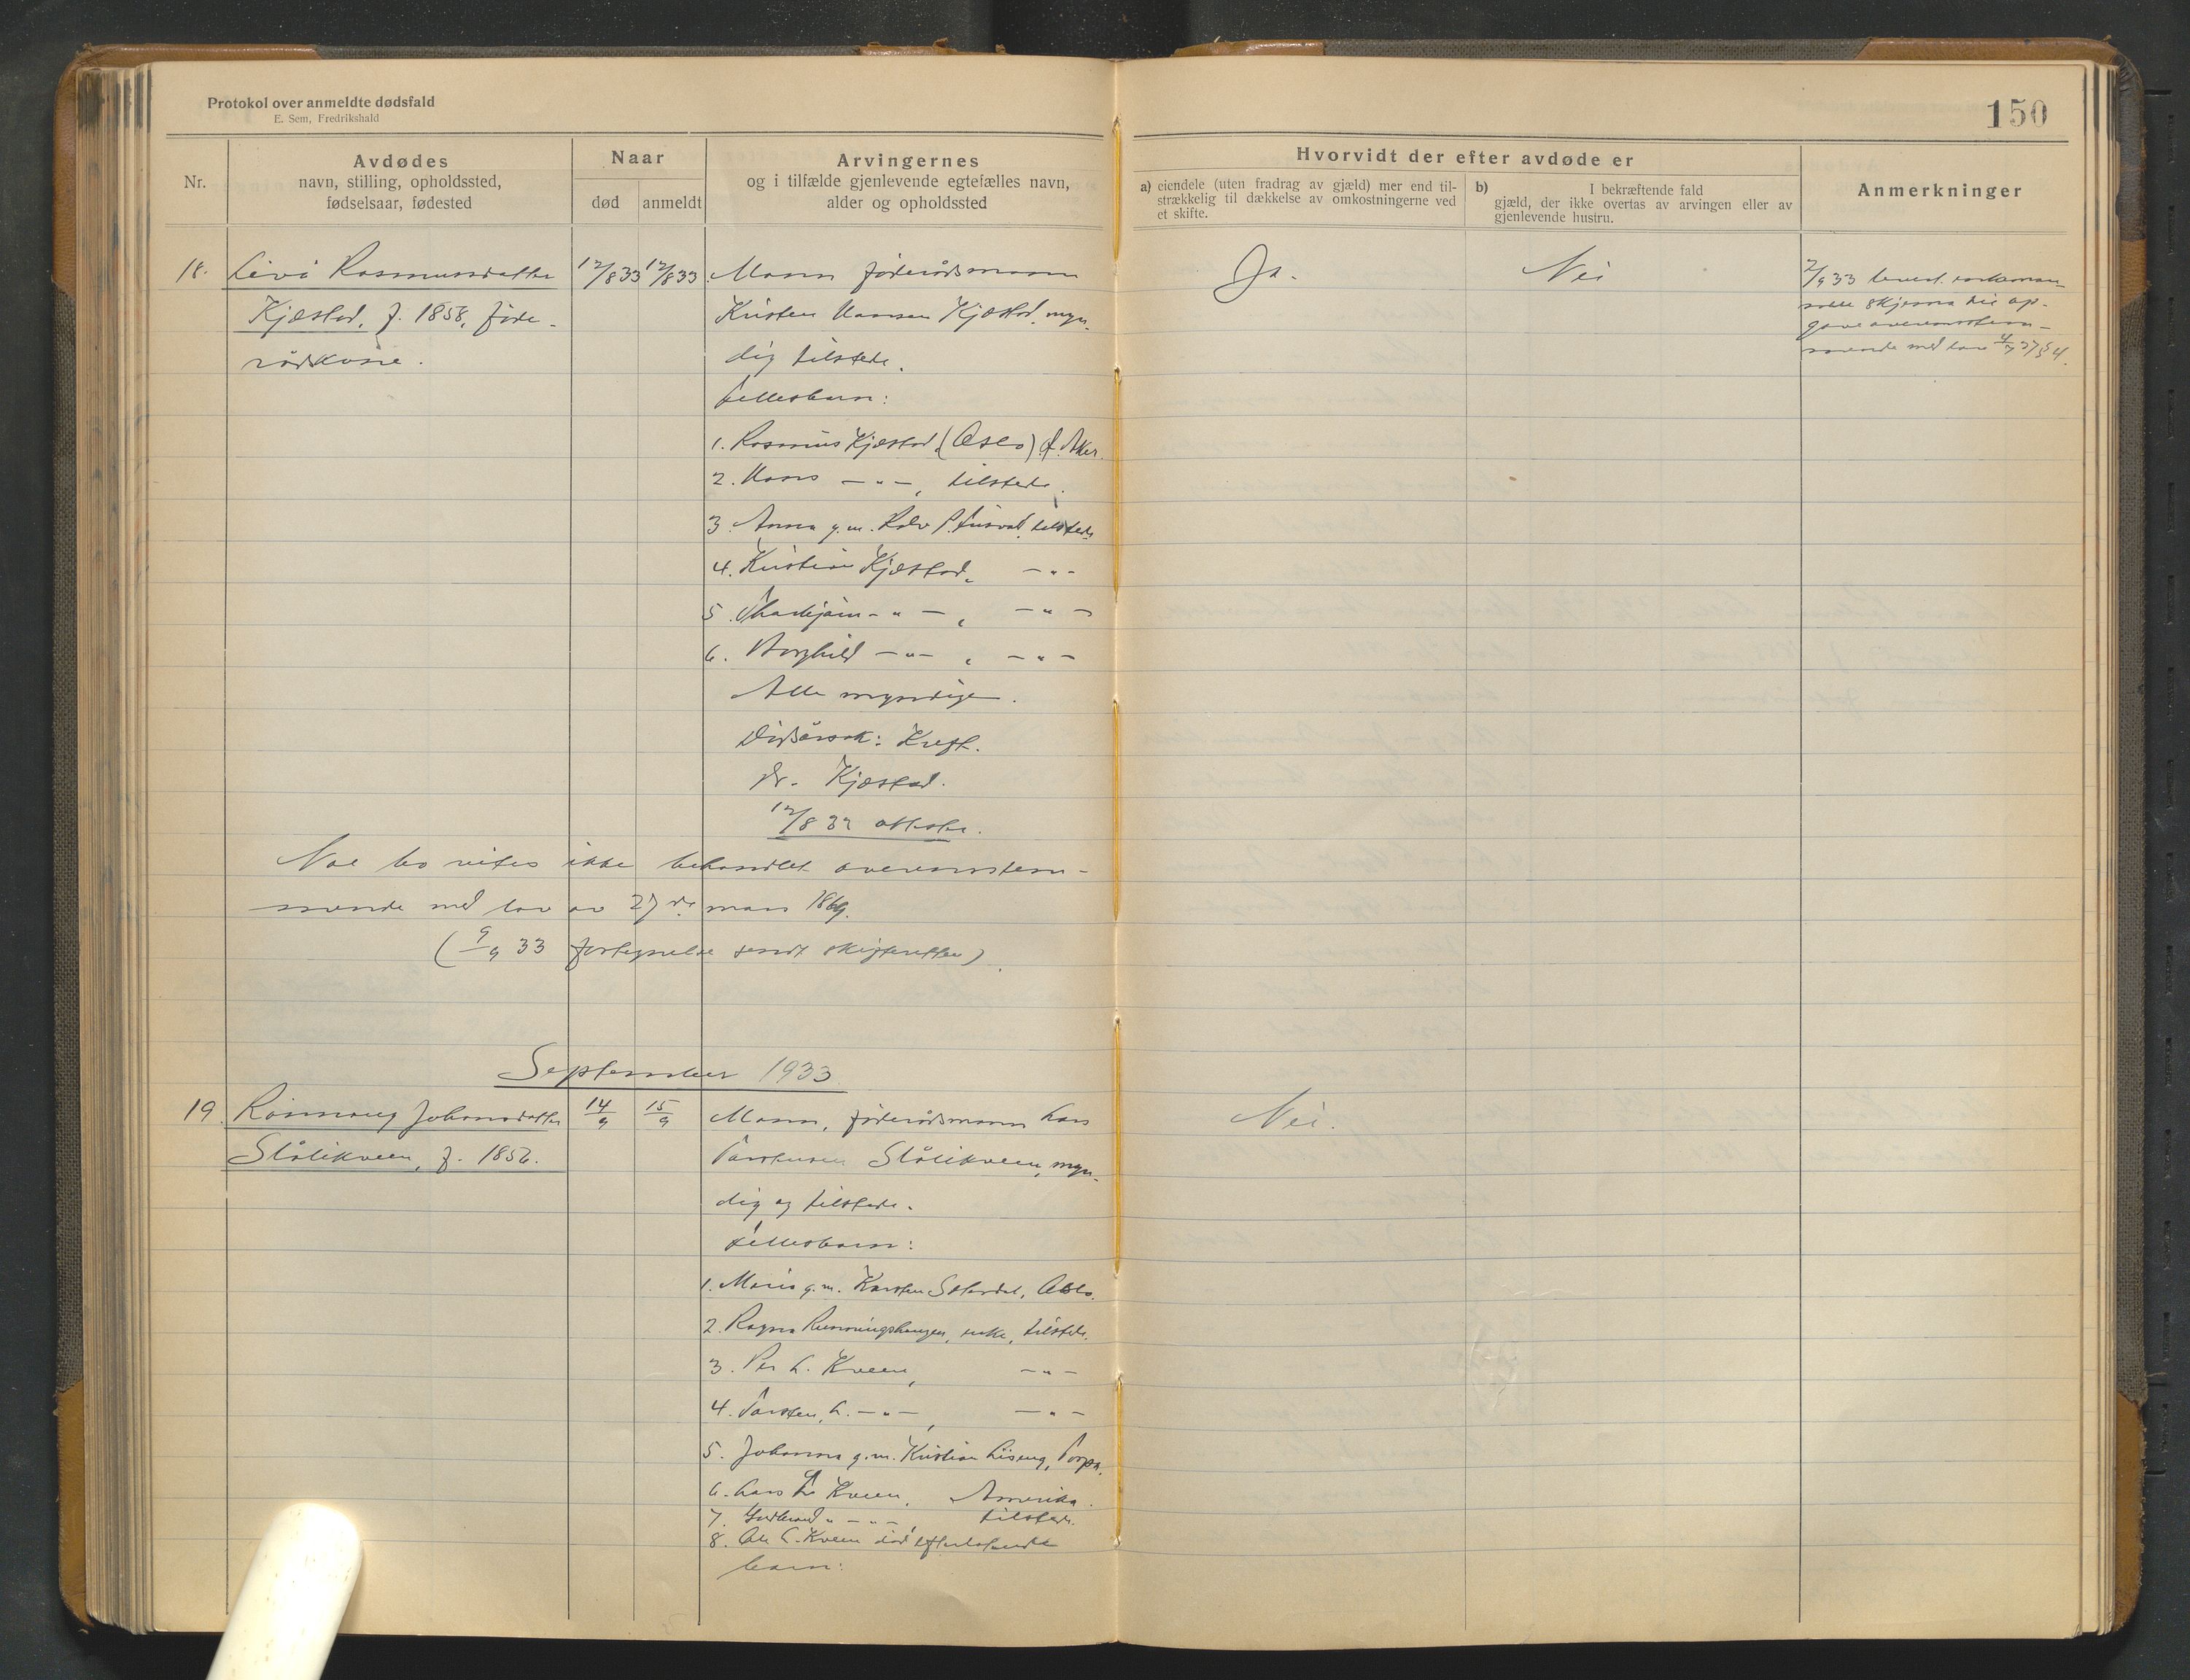 Protokol over anmeldte dødsfald
E. Sem, Fredrikshald
150
Nr.
Avdødes
navn, stilling, opholdssted,
fødselsaar, fødested
Naar
død
anmeldt
Arvingernes
og i tilfælde gjenlevende egtefælles navn,
alder og opholdssted
Hvorvidt der efter avdøde er
a) eiendele (uten fradrag av gjæld) mer end til-
strækkelig til dækkelse av omkostningerne ved
et skifte.
b) I bekræftende fald
gjæld, der ikke overtas av arvingen eller av
gjenlevende hustru.
Anmerkninger
18. Livi Rasmusdatter
Kjæstad, f. 1858, føde-
rådskone.
12/8 33
12/8 33
Mann føderådsmann
Kristen Hansen Kjæstad, myn-
dig tilstede.
Fellesbarn:
1. Rasmus Kjæstad, (Oslo) Ø. Aker.
2. Hans —"—, tilstede.
3. Anna g.m. tilstede
4. Kristian Kjæstad, —"—
5. —"—, —"—
6. Borghild —"—, —"—
Alle myndige.
Dødsårsak: Kreft.
Dr. Kjæstad.
12/8 33 attester.
bo vites ikke behandlet overensstem-
mende med lov av 27de mars 1869.
(9/9 33 fortegnelse sendt skifteretten).
Ja.
Nei
7/9 33
skjema til op-
gave overensstem-
mende med lov § 4.
September 1933
19. Rønnaug Johansdatter
Stålikveen, f. 1856.
14/9
15/9
Mann, føderådsmann Lars
Torstensen Stålikveen, myn-
dig og tilstede.
Fellesbarn:
1. Maria g.m. Karsten Oslo.
2. Ragna enke, tilstede.
3. Per L. Kveen, —"—
4. Torsten L. —"—, —"—
5. Johanna g.m. Kristian Liseng, Torpa.
6. Lars L. Kveen, Amerika.
7. Gudbrand " —"—, tilstede.
8. Ole L. Kveen død efterlatende
barn:
Nei.